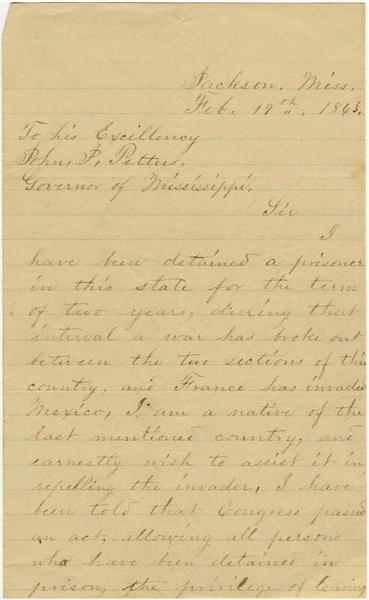 Jackson, Miss.
Feb. 19th, 1863.
To his Excillency
John, P, Pettus,
Governor of Mississippi.
Sir
I
have been detained a prisoner
in this state for the term
of two years, durring that
interval a war has broke out
between the two sections of this
country, and France has invaded
Mexico, I am a native of the
last mentioned country, and
earnestly wish to assist it in
repelling the invader, I have
been told that Congress passed
an act, allowing all persons
who have been detained in
prison, the privilege of leaving